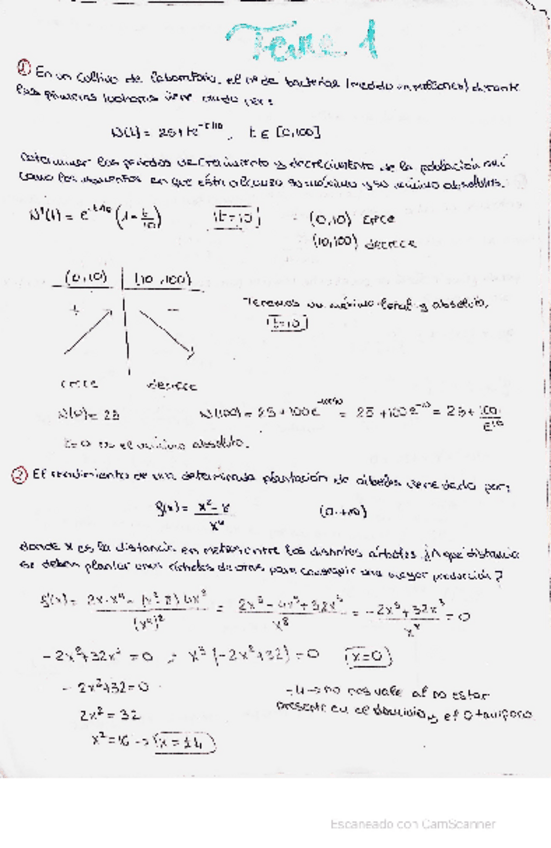 Tema 1
① En un cultivo de laboratorio, el nº de bacterias (medido en millones) durante
las primeras horas viene dado por:
N(t) = 25 + te^{-t/10}, t ∈ [0,100]
Determinar los periodos de crecimiento y decrecimiento de la población así
como los momentos en que ésta alcanza su máximo y su mínimo absolutos.
N'(t) = e^{-t/10} (1 - t/10) t=10 (0,10) crece
(10,100) decrece
(0,10) (10,100)
+ -
Tenemos un máximo local y absoluto,
t=10
crece decrece
N(0) = 25 N(100) = 25 + 100e^{-100/10} = 25 + 100e^{-10} = 25 + 100/e^{10}
t=0 es el mínimo absoluto.
② El rendimiento de una determinada plantación de árboles viene dado por:
f(x) = (x² - 8)/x⁴ (0, +∞)
donde x es la distancia en metros entre los distintos árboles ¿A qué distancia
se deben plantar unos árboles de otros para conseguir una mayor producción?
-2x⁵ + 32x³ = 0 x³(-2x² + 32) = 0 x=0
-2x² + 32 = 0
-4 → no nos vale al no estar
2x² = 32
presente en el dominio y el 0 tampoco
x² = 16 → x = ±4
Escaneado con CamScanner